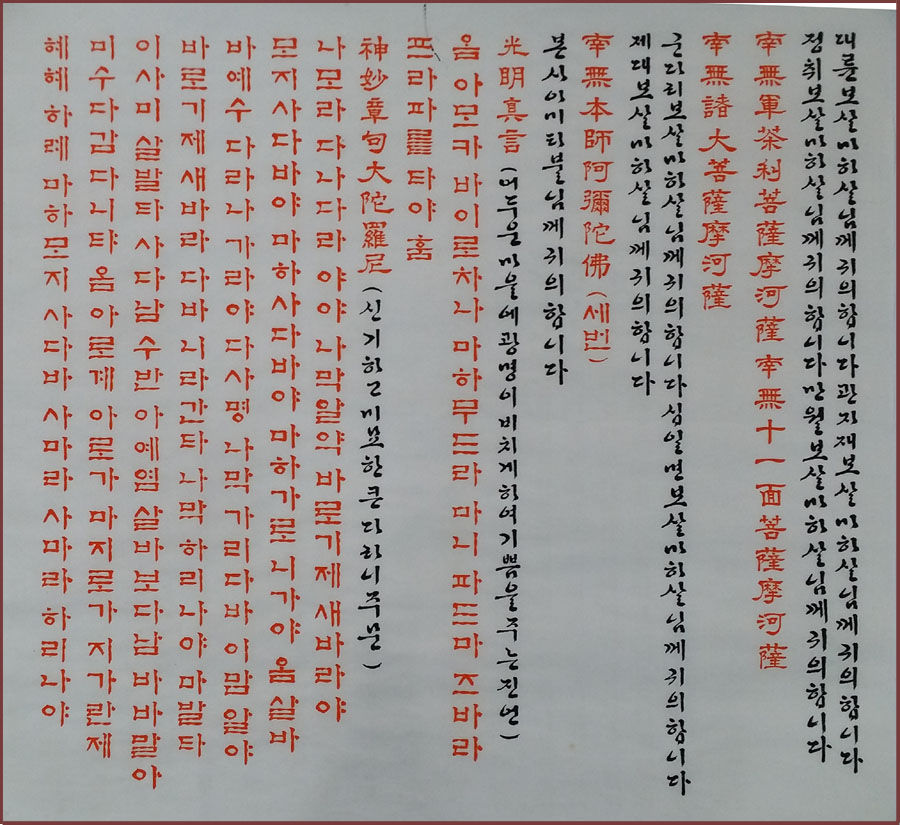 대륜보살마하살님께귀의합니다관자재보살마하살님께귀의합니다
정취보살마하살님께귀의합니다만월보살마하살님께귀의합니다
南無軍茶利菩薩摩河薩南無十一面菩薩摩河薩
南無諸大菩薩摩河薩
군다리보살마하살님께귀의합니다십일면보살마하살님께귀의합니다
제대보살마하살님께귀의합니다
南無本師阿彌陀佛(세번)
본사아미타불님께귀의합니다
光明真言(어두운마을에광명이비치게하여기쁨을주는진언)
옴 아모카 바이로차나 마하무드라 마니 파드마 즈바라
프라파릍타야 훔
神妙章句大陀羅尼(신기하고미묘한큰다라니주문)
나모라다나다라야야나막알약바로기제새바라야
모지사다바야마하사다바야마하가로니가야 옴살바
바예수다라나가라야다사명나막가리다바이맘알야
바로기제새바라다바니라간타나막하리나야마발타
이사미살발타사다남수반아예염살바보다남바바말아
미수다감다니타 옴아로계아로가마지로가지가란제
혜혜하례마하모지사다바사마라사마라하리나야